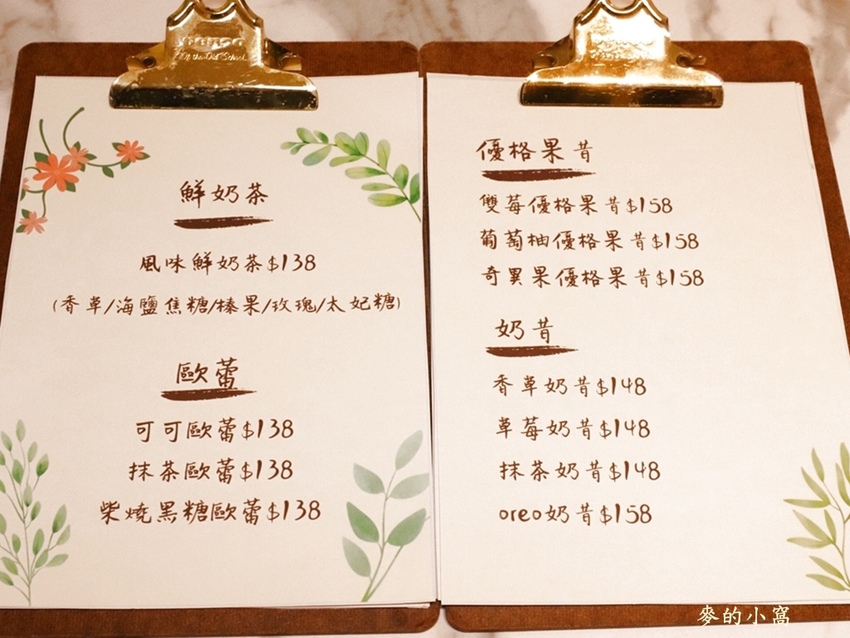 鮮奶茶
風味鮮奶茶$138
(香草/海鹽焦糖/榛果/玫瑰/太妃糖)
歐蕾
可可歐蕾$138
抹茶歐蕾$138
柴燒黑糖歐蕾$138
優格果昔
雙莓優格果昔$158
葡萄柚優格果昔$158
奇異果優格果昔$158
奶昔
香草奶昔$148
草莓奶昔$148
抹茶奶昔$148
oreo奶昔$158
麥的小窩